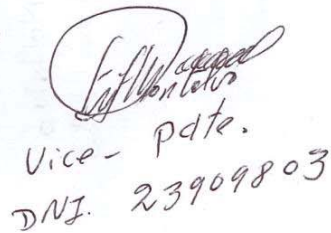 Vice- Pdte.
DNI. 23909803